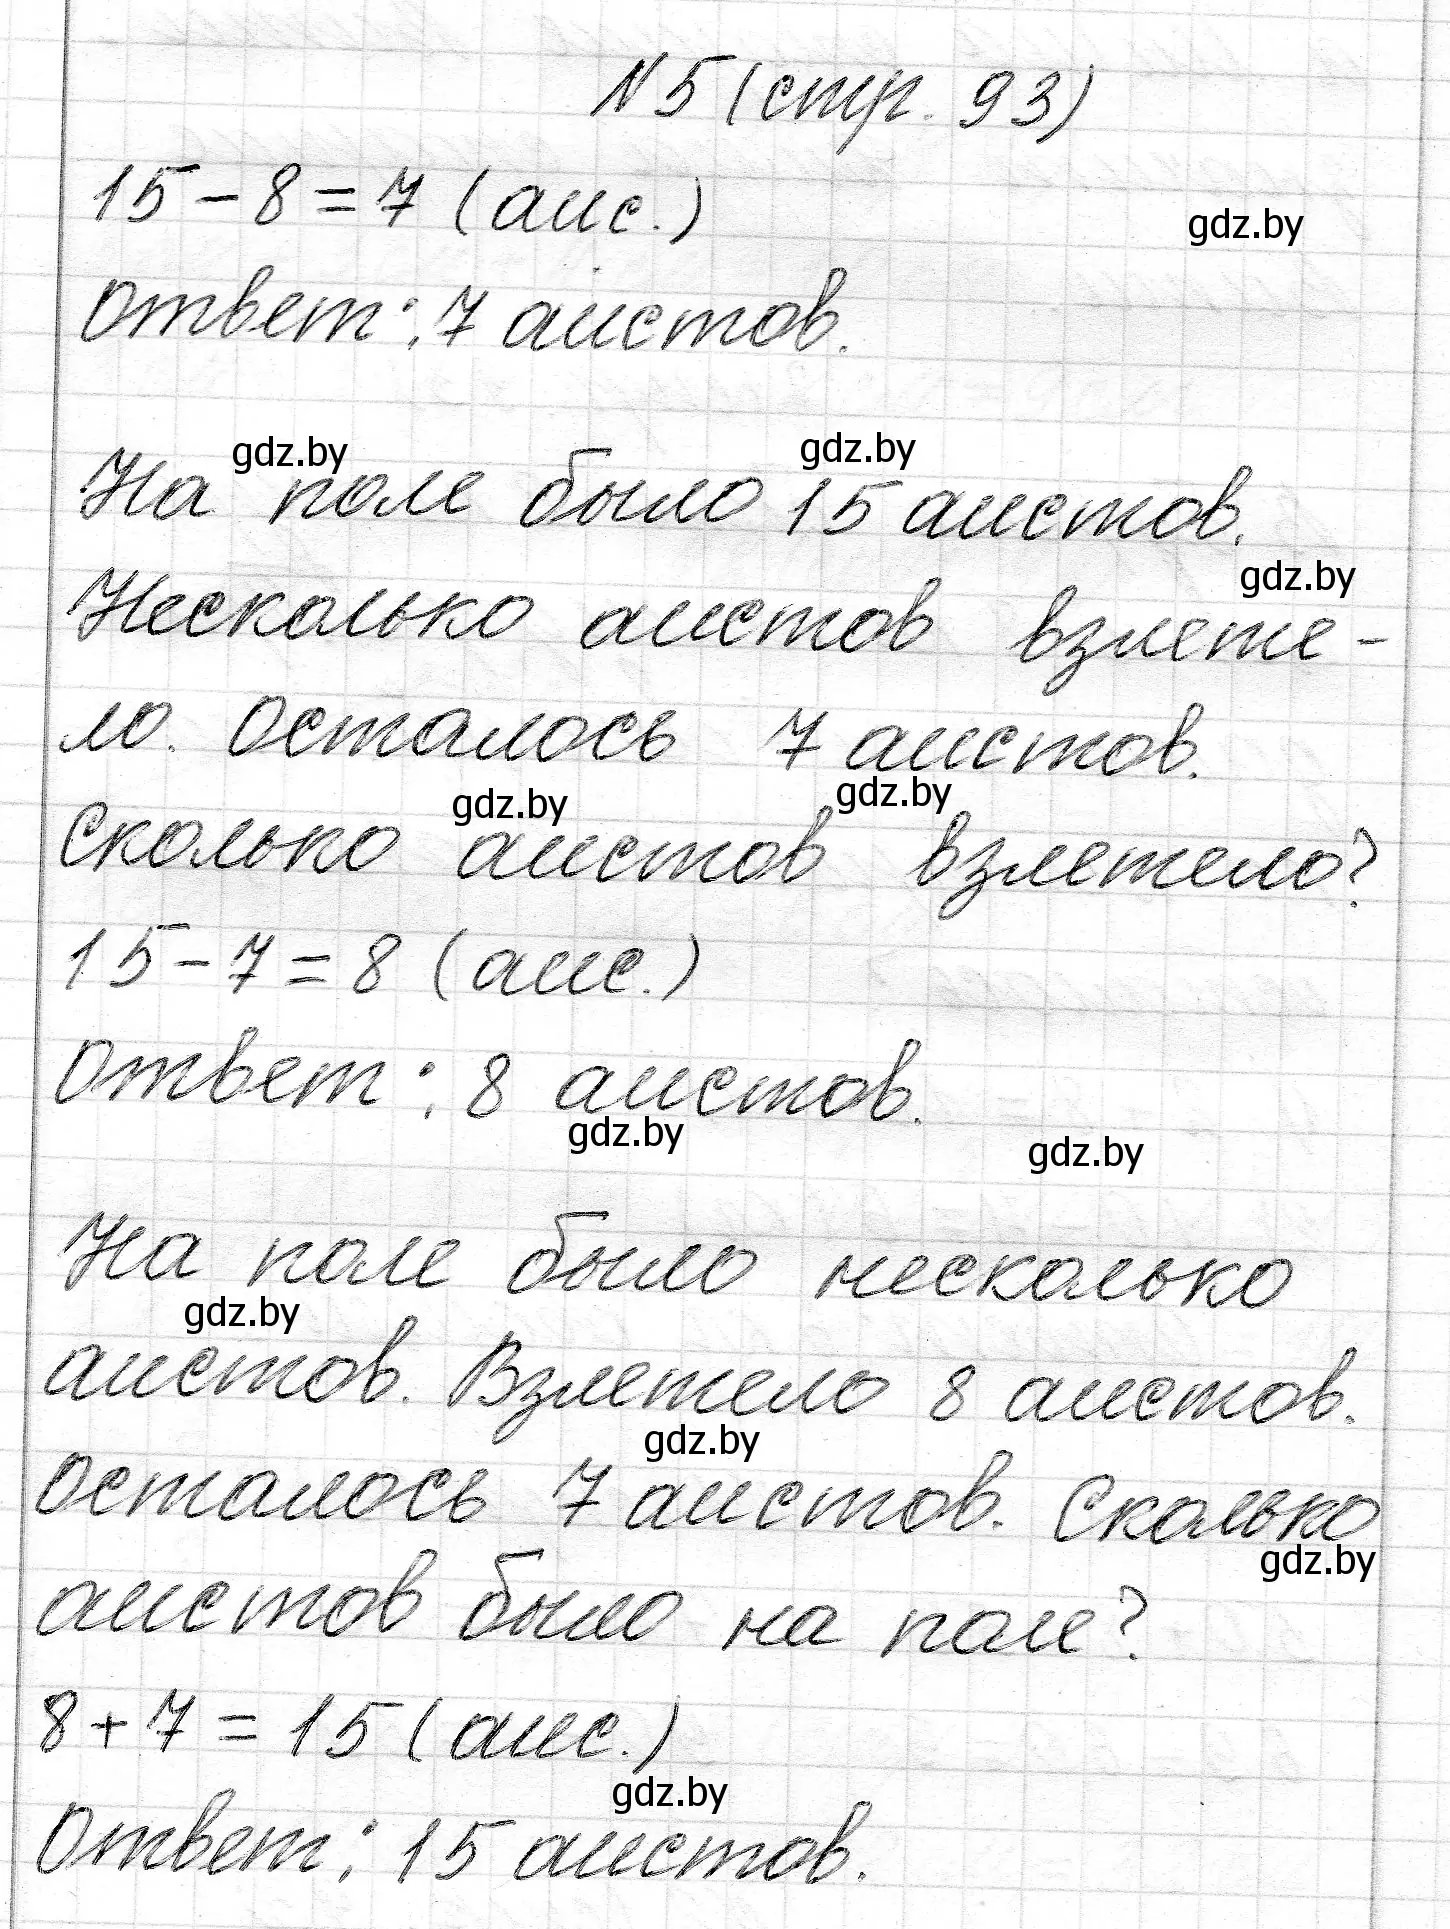 N 5 (стр. 93)
15 - 8 = 7 (аис.)
gdz.by
Ответ: 7 аистов.
gdz.by
gdz.by
На поле было 15 аистов.
gdz.by
Несколько аистов взлете-
ло. Осталось 7 аистов.
gdz.by
gdz.by
Сколько аистов взлетело?
15 - 7 = 8 (аис.)
Ответ: 8 аистов.
gdz.by
gdz.by
На поле было несколько
gdz.by
аистов. Взлетело 8 аистов.
gdz.by
Осталось 7 аистов. Сколько
gdz.by
аистов было на поле?
8 + 7 = 15 (аис.)
gdz.by
Ответ: 15 аистов.